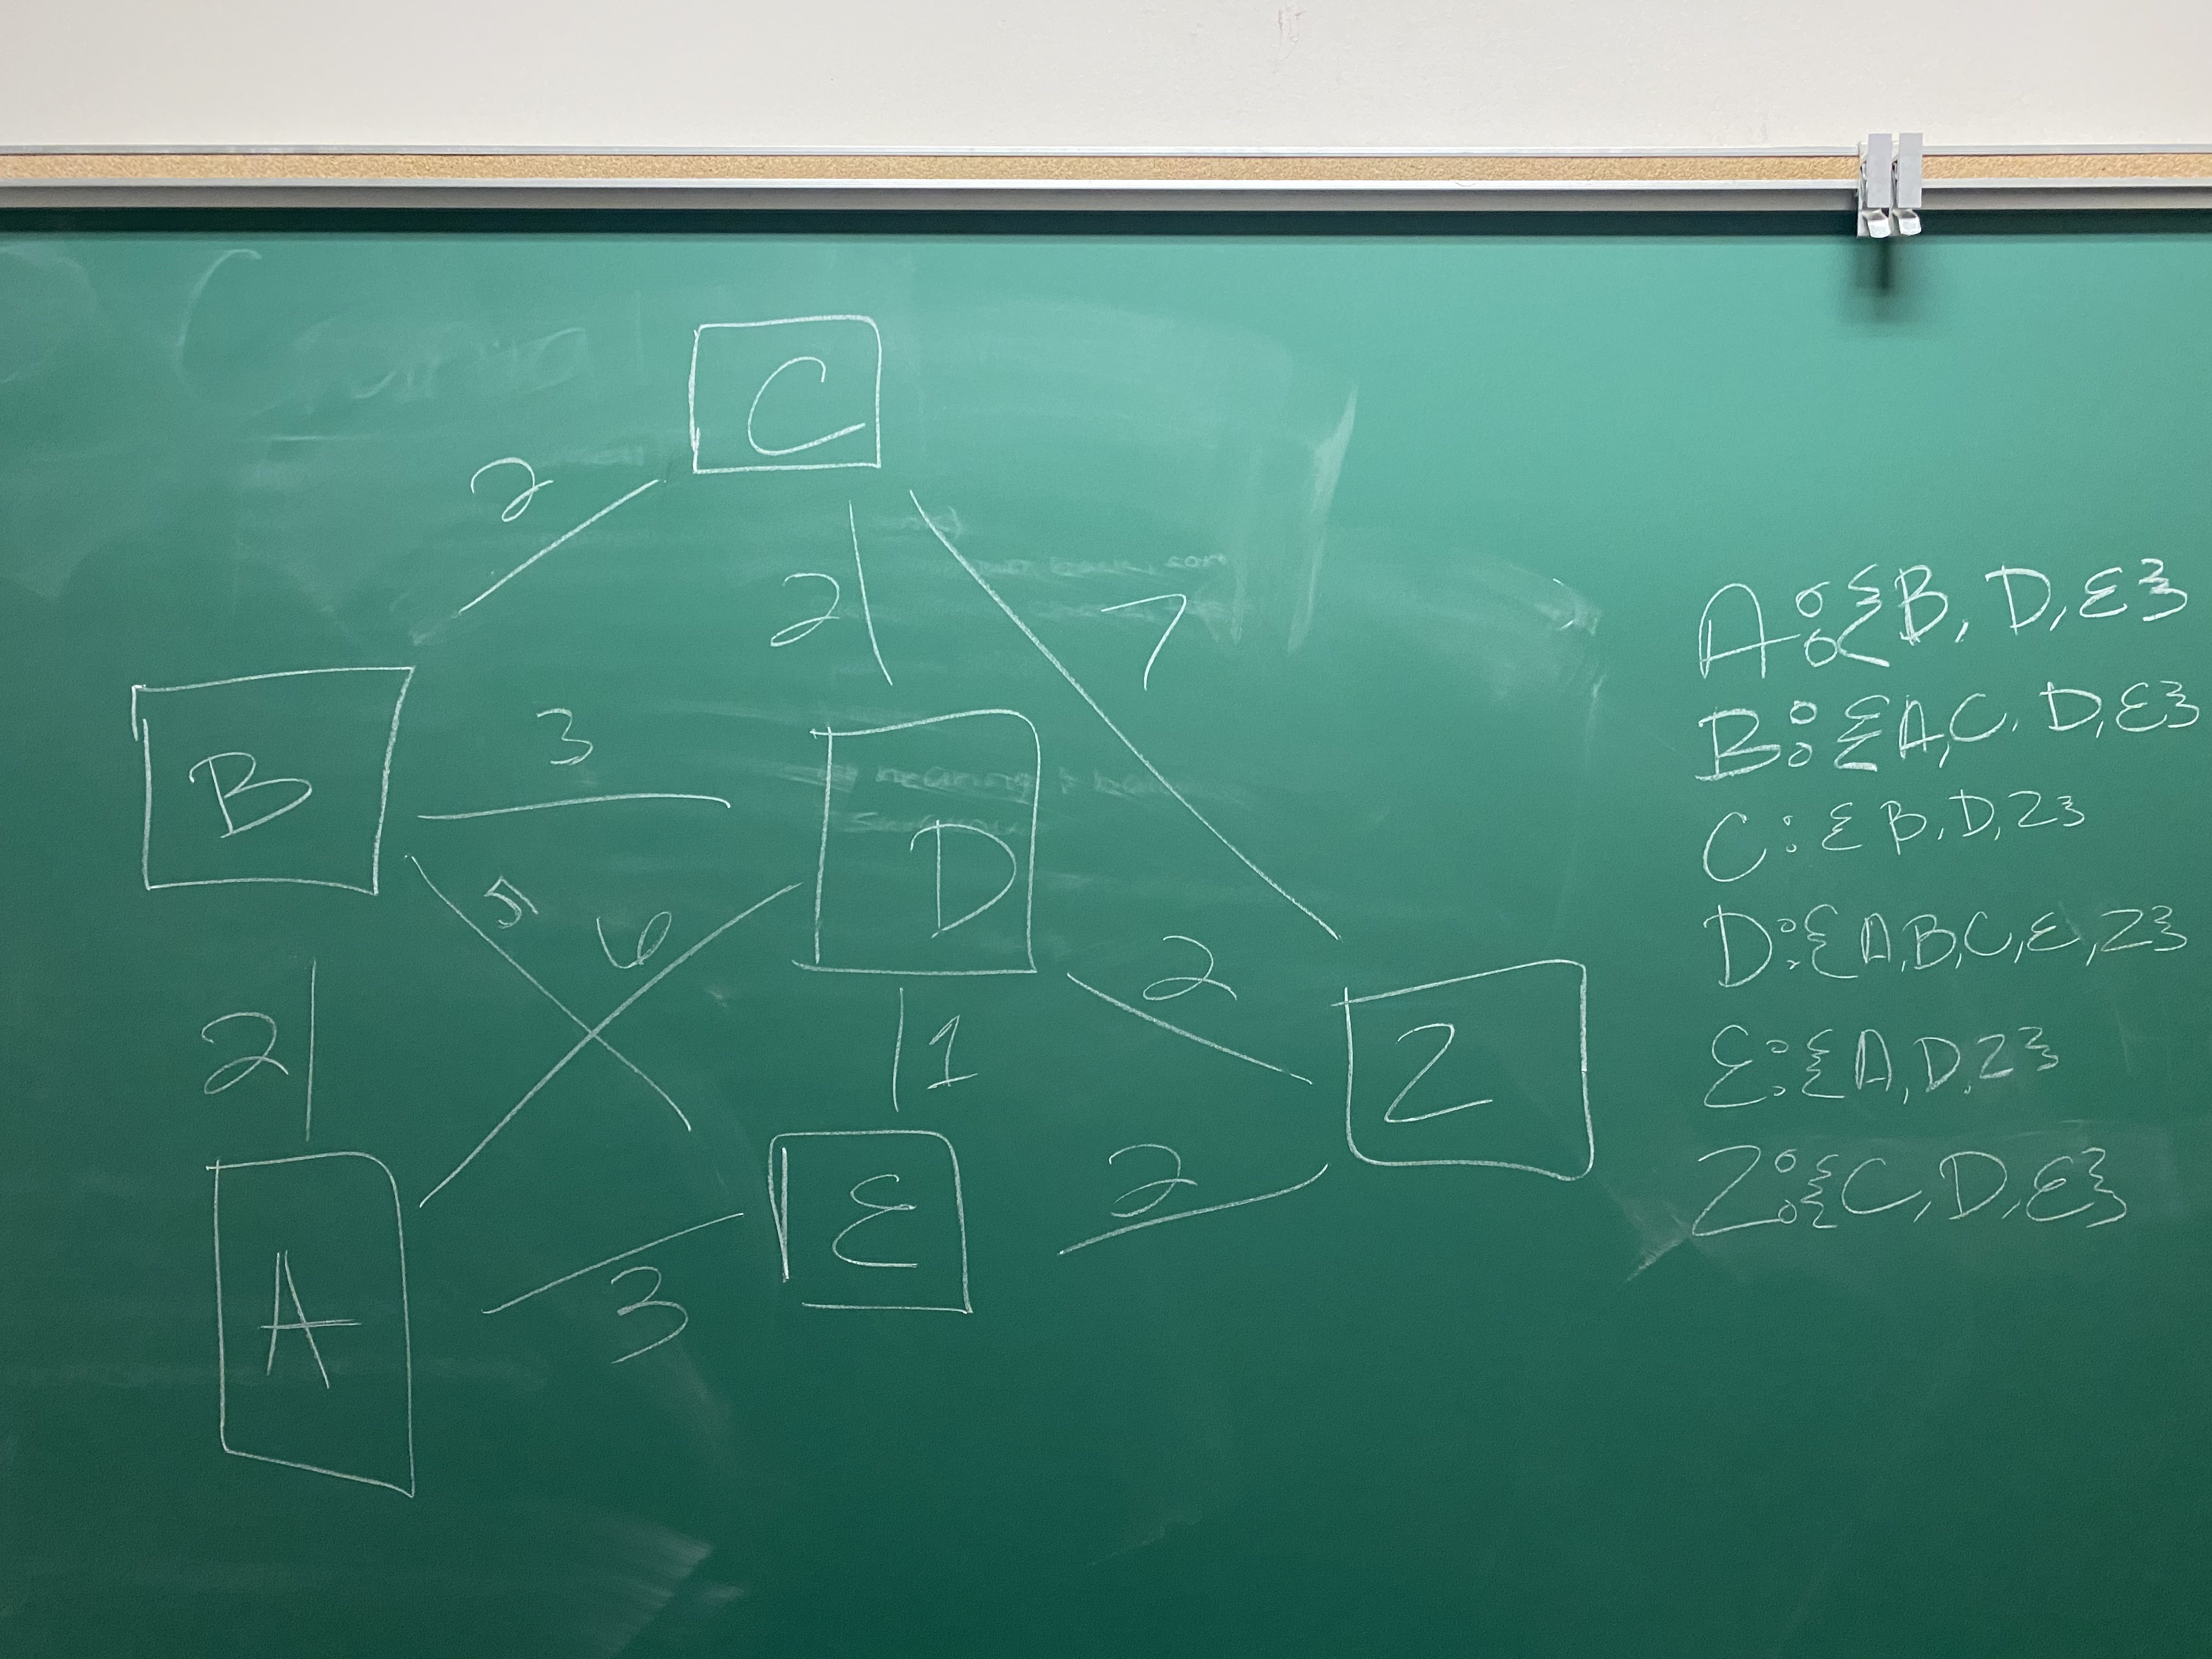 C
2
2
7
B
3
D
5
6
2
2
1
Z
A
3
E
2
A:{B, D, E}
B:{A,C, D,E}
C:{B,D,Z}
D:{A,B,C,E,Z}
E:{A,D,Z}
Z:{C,D,E}